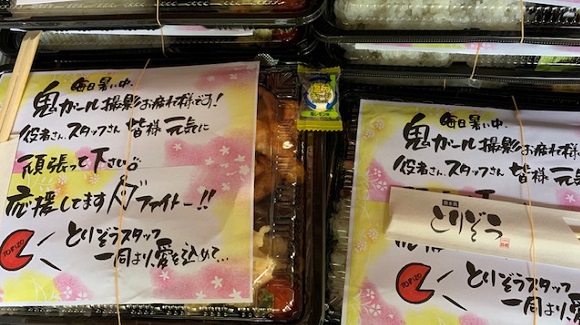 毎日暑い中、
鬼ガール撮影お疲れ様です!
役者さん、スタッフさん 皆様 元気に
頑張って下さい。
応援してます ファイトー!!
TORIZO
とりぞうスタッフ
一同より、愛を込めて…
毎日暑い中、
鬼ガール撮影お疲れ様
役者さん、スタッフさん 皆様 元
とりぞう
TORIZO
とりぞうスタッフ
一同より、愛を込め